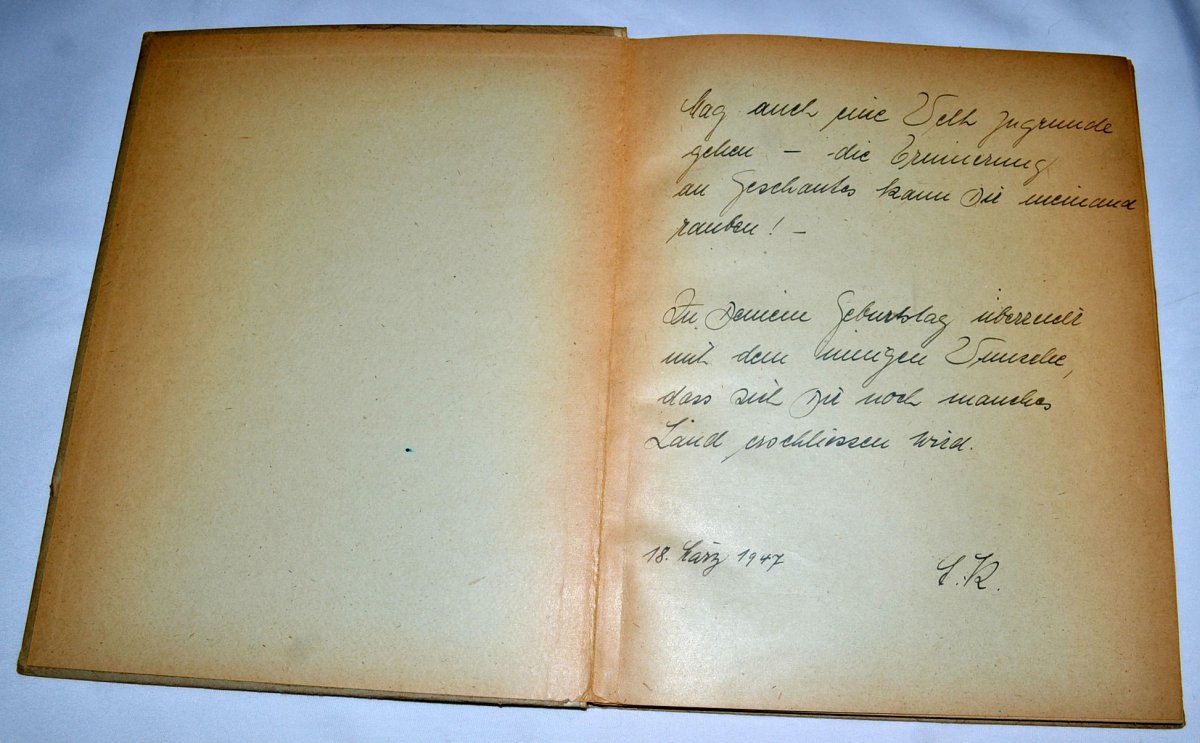 Mag auch eine Welt zugrunde
gehen – die Erinnerung
an Geschautes kann Dir niemand
rauben! –
Zu Deinem Geburtstag überreicht
mit dem innigen Wunsche,
dass sich Dir noch manches
Land erschliessen wird.
18. März 1947
K.